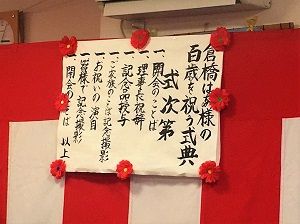 倉橋はる様の
百歳を祝う式典
式次第
一、開会のことば
一、理事長祝辞
一、記念品授与
一、ご家族のことば 記念撮影
一、お祝いの演目
一、皆様で記念撮影
一、閉会のことば 以上